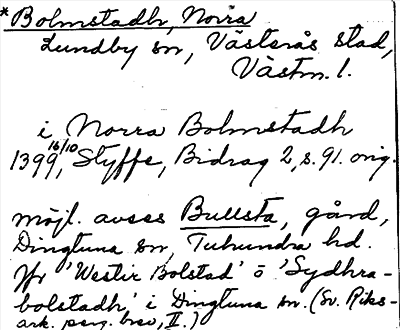 *Bolmstadh, Norra
Lundby sn, Västerås stad,
Västm. l.
i Norra Bolmstadh
1399 16/10, Styffe, Bidrag 2, s. 91. orig.
möjl. avses Bullsta, gård,
Dingtuna sn, Tuhundra hd.
Jfr 'Westir Bolstad' o 'Sydhra-
bolstadh' i Dingtuna sn. (Sv. Riks-
ark. perg. brev, II.)